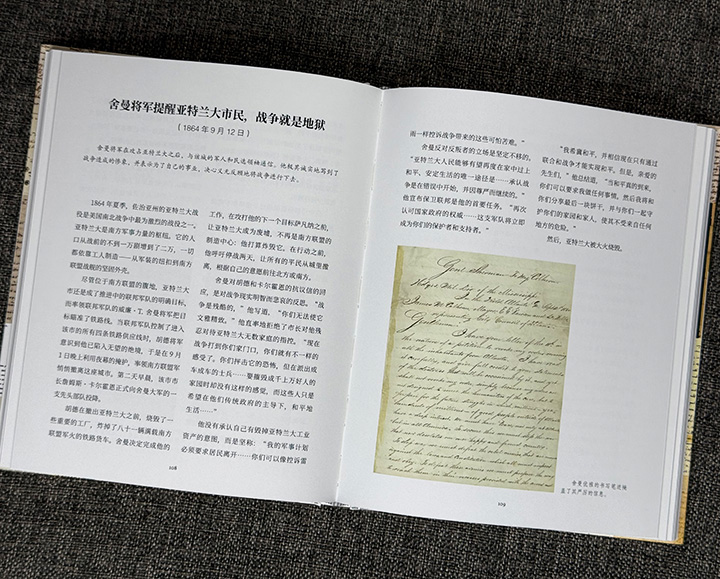 舍曼将军提醒亚特兰大市民，战争就是地狱
（1864 年 9 月 12 日）
舍曼将军在攻占亚特兰大之后，与该城的军人和民选领袖通信。他极其诚实地写到了
战争造成的伤害，并表示为了自己的事业，决心义无反顾地将战争进行下去。
1864 年夏季，佐治亚州的亚特兰大战
役是美国南北战争中最为激烈的战役之一。
亚特兰大是南方军事力量的枢纽，它的人
口从战前的不到一万剧增到了二万，一切
都依靠工人制造——从军装的纽扣到南方
联盟战舰的坚固外壳。
尽管位于南方联盟的腹地，亚特兰大
市还是成了推进中的联邦军队的明确目标，
而率领联邦军队的威廉·T. 舍曼将军把目
标瞄准了铁路线。当联邦军队控制了进入
该市的所有四条铁路供应线时，胡德将军
意识到他已陷入无望的绝境，于是在 9 月
1 日晚上利用夜幕的掩护，率领南方联盟军
悄悄撤离这座城市。第二天早晨，该市市
长詹姆斯·卡尔霍恩正式向舍曼大军的一
支先头部队投降。
胡德在撤出亚特兰大之前，烧毁了一
些重要的工厂，炸掉了八十一辆满载南方
联盟军火的铁路货车。舍曼决定完成他的
108
工作，在攻打他的下一个目标萨凡纳之前，
让亚特兰大成为废墟，不再是南方联盟的
制造中心：他打算炸毁它。在行动之前，
他呼吁停战两天，让所有的平民从城里撤
离，根据自己的意愿前往北方或南方。
舍曼对胡德和卡尔霍恩的抗议信的回
应，是对战争现实明智而悲哀的反思。“战
争是残酷的，”他写道，“你们无法使它
文雅释放。”他直率地拒绝了市长对他残
忍对待亚特兰大无数家庭的指控。“现在
战争打到你们家门口，你们就有不一样的
感受了。你们抨击它的恐怖，但在派出成
车成车的士兵……要摧毁成千上万好人的
家园时却没有这样的感觉，而这些人只是
希望在他们传统政府的主导下，和平地
生活……”
他没有承认自己有毁掉亚特兰大工业
资产的意图，而是坚称：“我的军事计划
必须要求居民离开……你们可以像控诉雷
雨一样控诉战争带来的这些可怕苦难。”
舍曼反对反叛者的立场是坚定不移的，
“亚特兰大人民能够有望再度在家中过上
和平、安定生活的唯一途径是……承认战
争是在错误中开始，并因尊严而继续的。”
他宣布保卫联邦是他的首要任务。“再次
认可国家政府的权威……这支军队将立即
成为你们的保护者和支持者。”
“我希冀和平，并相信现在只有通过
联合和战争才能实现和平。但是，亲爱的
先生们，”他总结道，“当和平真的到来，
你们可以要求我做任何事情，然后我将和
你们分享最后一块饼干，并与你们一起守
护你们的家园和家人，使其不受来自任何
地方的危险。”
然后，亚特兰大被大火烧毁。
Gentlemen,
舍曼优雅的书写笔迹掩
盖了其严厉的信息。
109